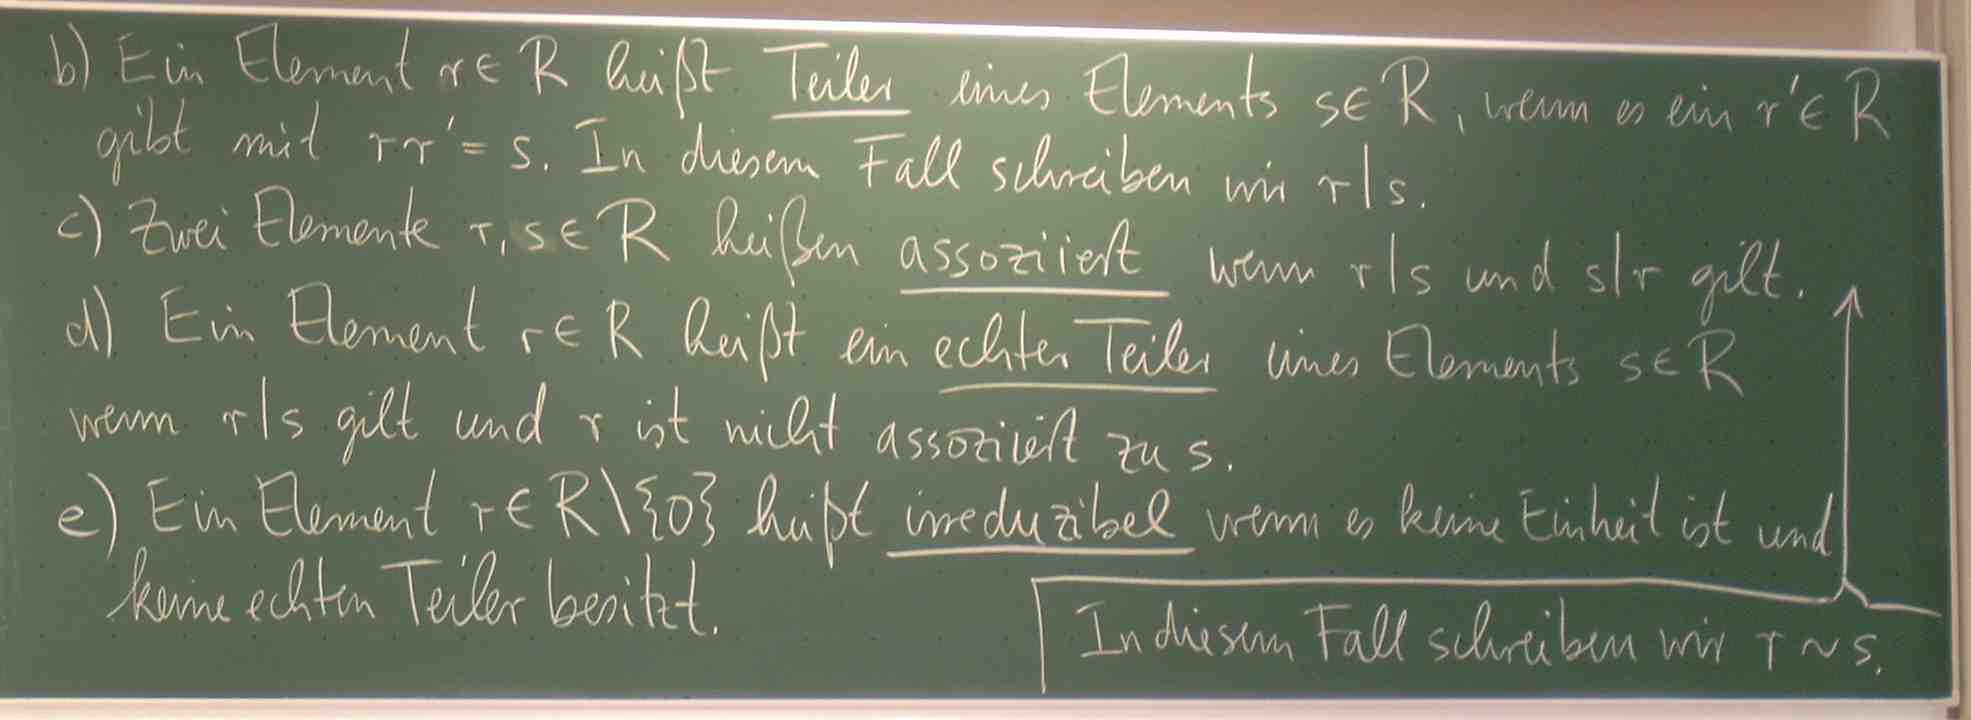 b) Ein Element r∈R heißt Teiler eines Elements s∈R, wenn es ein r'∈R
gibt mit rr'=s. In diesem Fall schreiben wir r|s.
c) Zwei Elemente r,s∈R heißen assoziiert wenn r|s und s|r gilt.
d) Ein Element r∈R heißt ein echter Teiler eines Elements s∈R
wenn r|s gilt und r ist nicht assoziiert zu s.
e) Ein Element r∈R\{0} heißt irreduzibel wenn es keine Einheit ist und
keine echten Teiler besitzt.
In diesem Fall schreiben wir r~s.